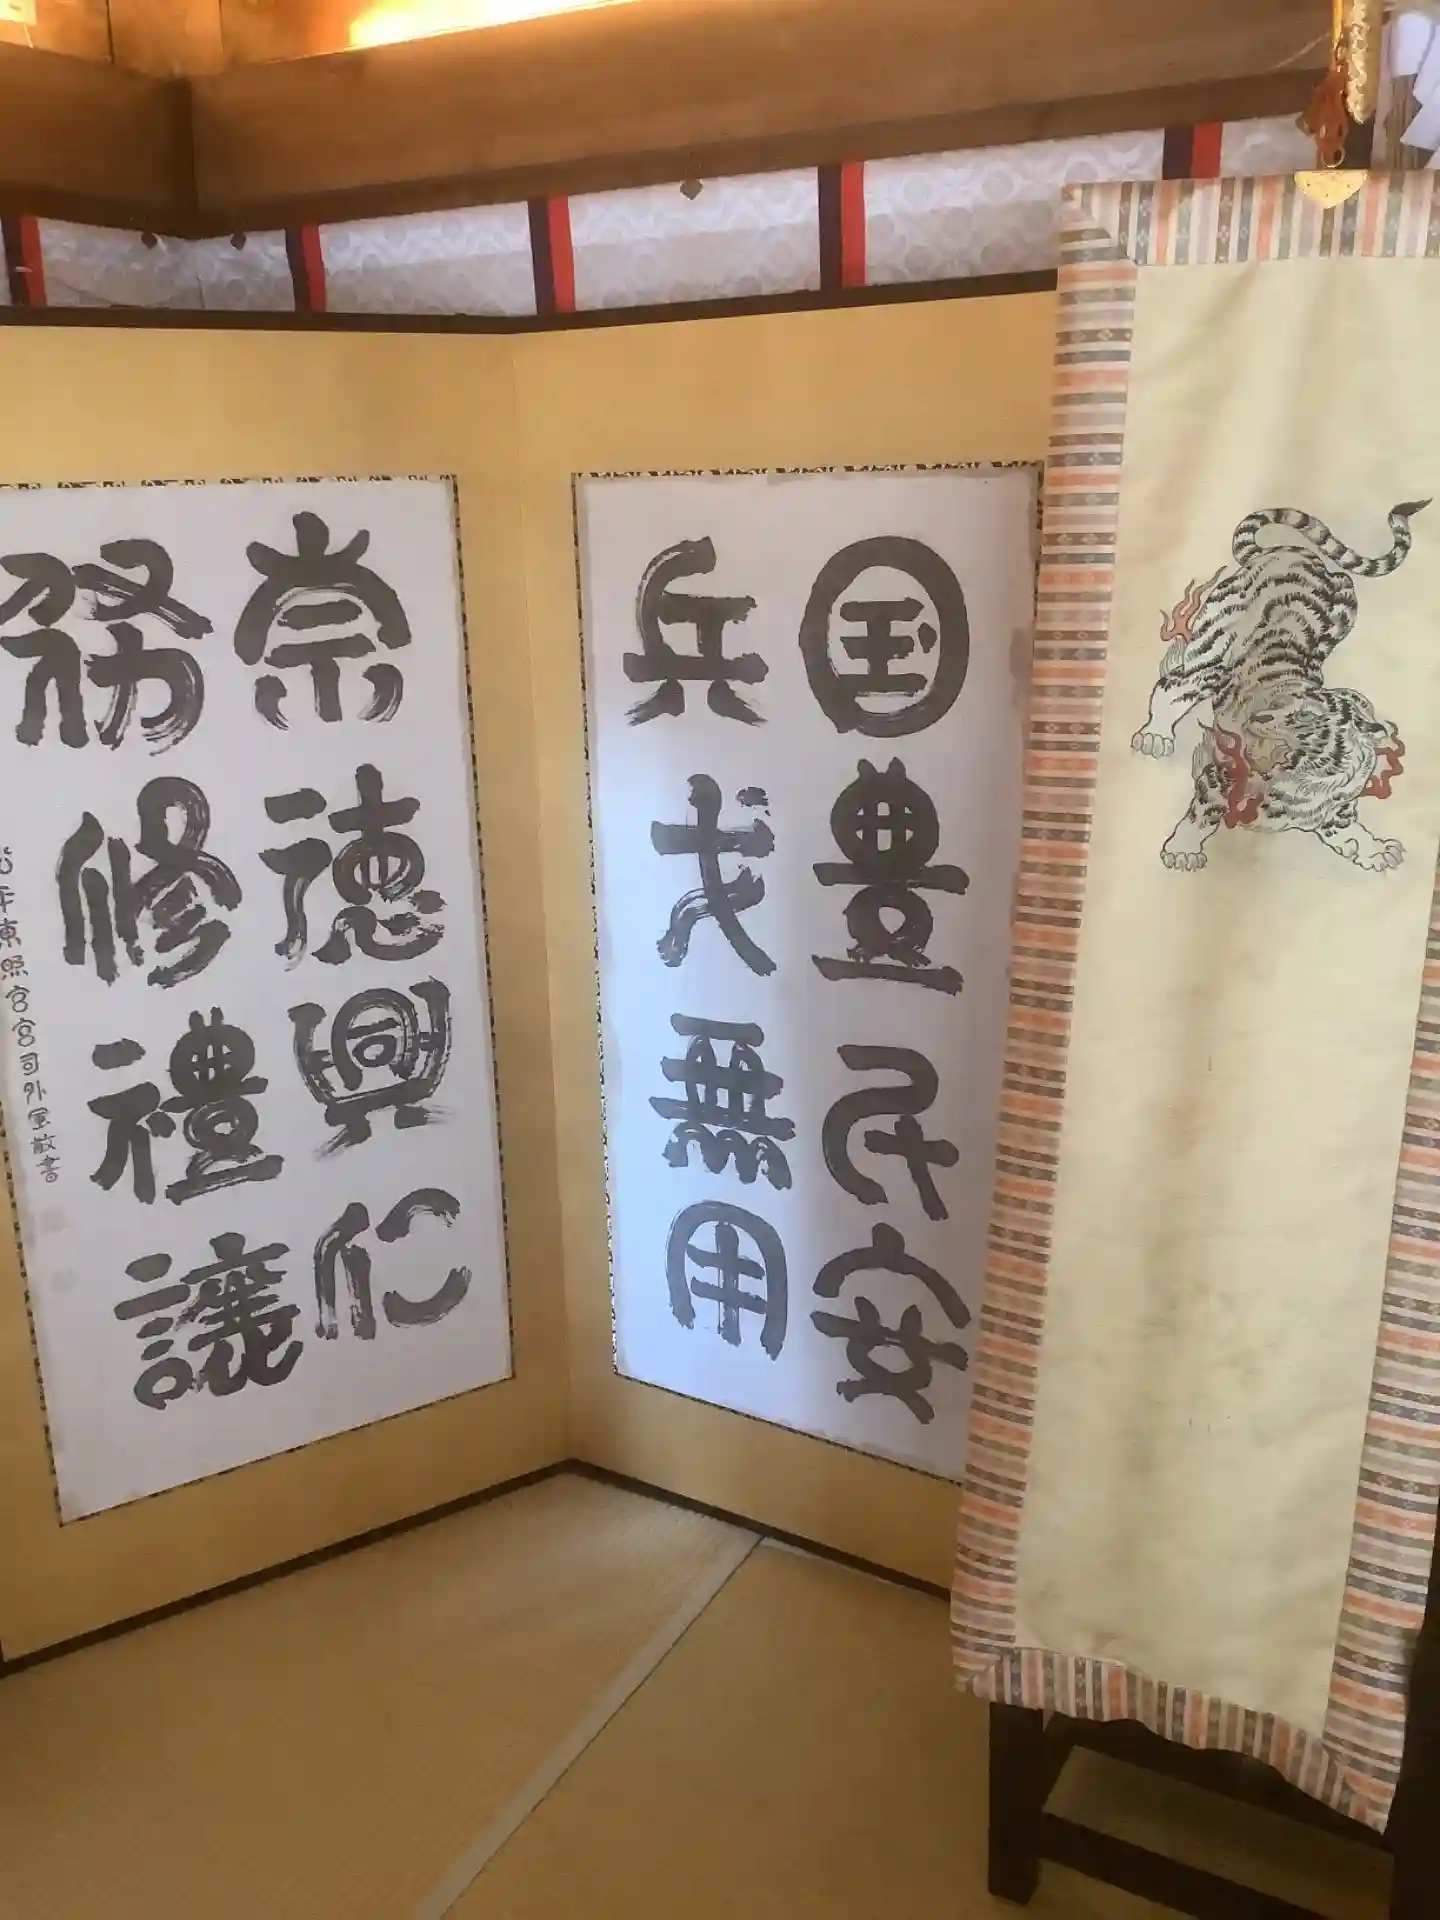 国豊民安
兵戈無用
崇徳興仁
務修禮讓
年東照宮宮司外風敬書